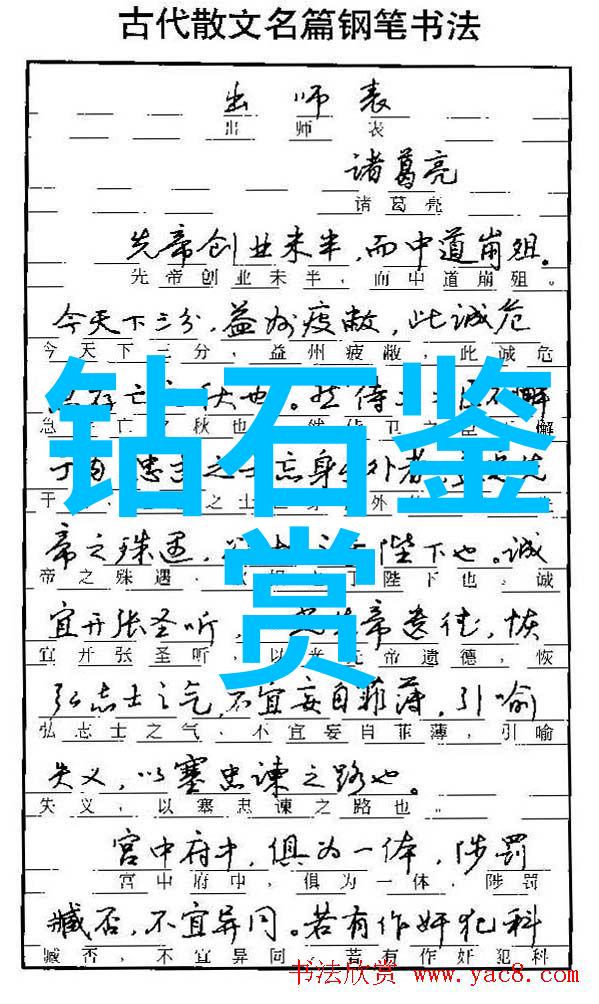 古代散文名篇钢笔书法
出师表
出师表
诸葛亮
诸葛亮
先帝创业未半,而中道崩殂。
先帝创业未半,而中道崩殂。
今天下三分,益州疲敝,此诚危
今天下三分,益州疲敝,此诚危
急存亡之秋也。然侍卫之臣不懈
急亡之秋也。然侍卫之臣不懈
钻石鉴
于内,忠志之士忘身于外者,盖追先
于之士身外
帝之殊遇,陛下也。诚
帝之殊遇,陛下也,诚
赏
宜开张圣听,以光先帝遗德,恢
宜开张圣听,以光先帝遗德,恢
弘志士之气,不宜妄自菲薄,引喻
弘志士之气、不宜妄自菲薄,引喻
失义,以塞忠谏之路也。
失义,以塞忠谏之路也。
宫中府中,俱为一体,陟罚
宫中府中,俱为一体,陟罚
臧否,不宜异同。若有作奸犯科
臧否,不宜异同。若有作奸犯科
书法欣赏 www.yac8.com